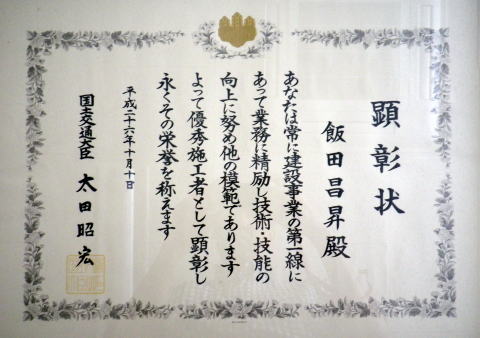 顕彰状
飯田昌昇殿
あなたは常に建設事業の第一線に
あって業務に精励し技術・技能の
向上に努め他の模範であります
よって優秀施工者として顕彰し
永くその栄誉を称えます
平成二十六年十月十日
国土交通大臣 太田昭宏